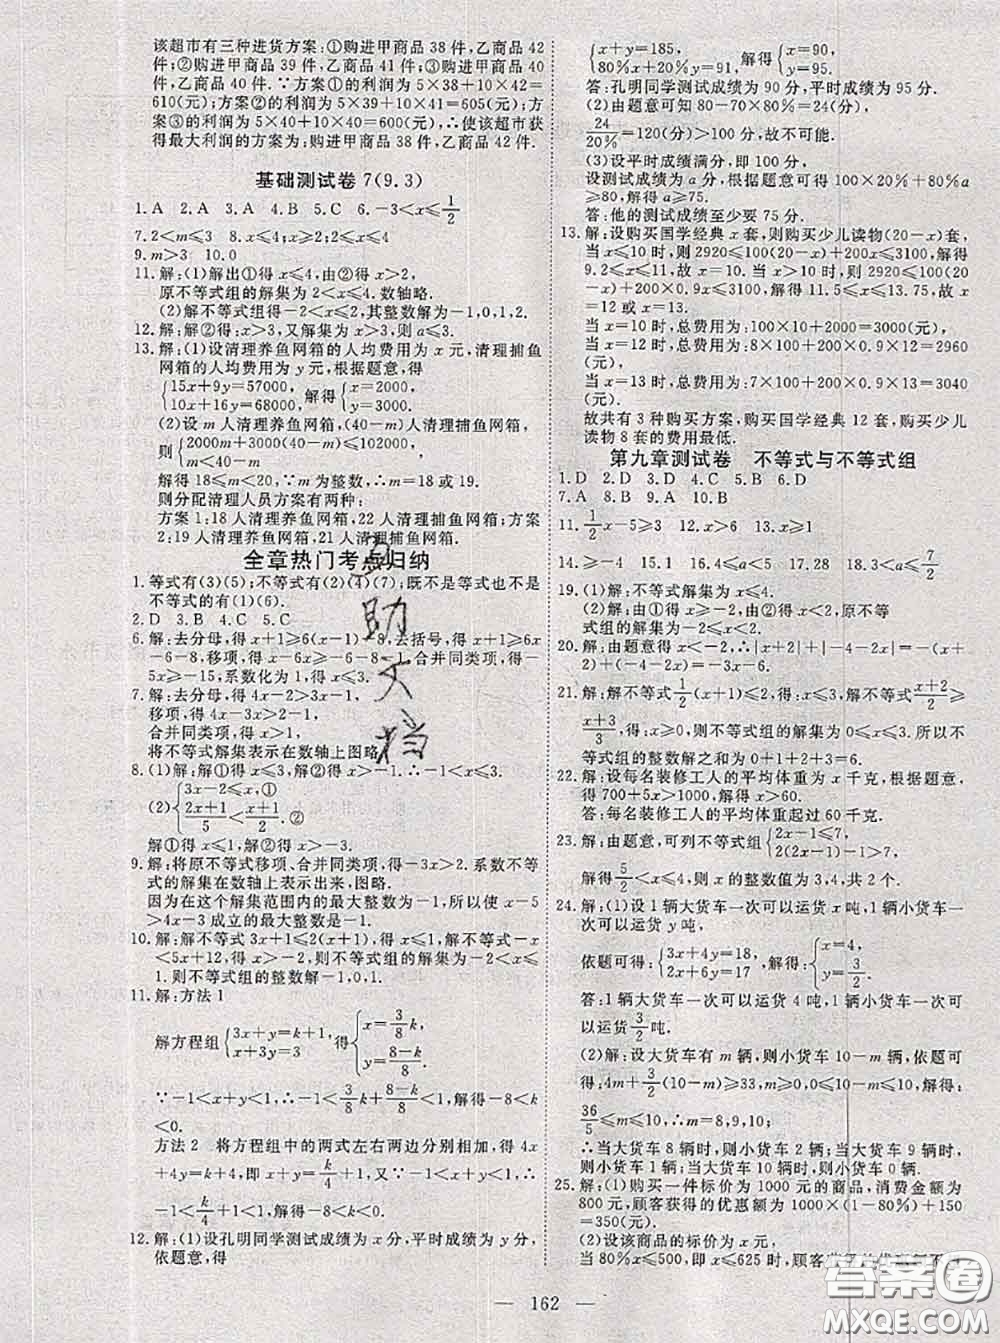 该超市有三种进货方案:①购进甲商品 38 件,乙商品 42
件;②购进甲商品 39 件,乙商品 41 件;③购进甲商品 40 件,
乙商品 40 件. ∵方案①的利润为 5×38+10×42=
610(元);方案②的利润为 5×39+10×41=605(元);方案
③的利润为 5×40+10×40=600(元),∴使该超市获
得最大利润的方案为:购进甲商品 38 件,乙商品 42 件.
基础测试卷 7(9.3)
1.A 2.A 3.A 4.B 5.C 6.-3<x≤1/2
7.2<m≤3 8.x≤4;x≤2;x≤4
9.m>3 10.0
11.解:(1)解出①得 x≤4,由②得 x>2,
原不等式组的解集为 2<x≤4.数轴略.
(2)解不等式组得-2<x≤2,其整数解为-1,0,1,2.
12.解:解②得:x>3,又解集为 x>3,则 a≤3.
13.解:(1)设清理养鱼网箱的人均费用为 x 元,清理捕鱼
网箱的人均费用为 y 元,根据题意,得
{15x+9y=57000, 解得{x=2000,
10x+16y=68000, y=3000.
(2)设 m 人清理养鱼网箱,(40-m)人清理捕鱼网箱,
则{2000m+3000(40-m)≤102000,
m<40-m,
解得 18≤m<20,∵m 是整数,∴m=18 或 19.
则分配清理人员方案有两种:
方案 1:18 人清理养鱼网箱,22 人清理捕鱼网箱;方案
2:19 人清理养鱼网箱,21 人清理捕鱼网箱.
全章热门考点归纳
1.等式有(3)(5);不等式有(2)(4)(7);既不是等式也不是
不等式的有(1)(6).
2.D 3.B 4.C 5.C
6.解:去分母,得 x+1≥6(x-1)-8,去括号,得 x+1≥6x
-6-8,移项,得 x-6x≥-6-8-1,合并同类项,得-
5x≥-15,系数化为 1,得 x≤3.
7.解:去分母,得 4x-2>3x-1,
移项,得 4x-3x>2-1,
合并同类项,得 x>1,
将不等式解集表示在数轴上图略.
8.(1)解:解①得 x≤3,解②得 x>-1.∴-1<x≤3.
(2){3x-2≤x,①
(2x+1)/5<(x+1)/2.②
解①得 x≤1.解②得 x>-3.∴-3<x≤1.
9.解:将原不等式移项、合并同类项,得-3x>2.系数不等
式的解集在数轴上表示出来.图略.
因为在这个解集范围内的最大整数为-1,所以使 x-5
>4x-3 成立的最大整数是-1.
10.解:解不等式 3x+1≤2(x+1),得 x≤1.解不等式-x
<5x+12,得 x>-2,所以不等式组的解集为-2<x≤
1.则不等式组的整数解-1,0,1.
11.解:方法 1
解方程组{3x+y=k+1, 得{x=3/8k,
x+3y=3 y=(8-k)/8.
∵-1<x+y<1,∴-1<3/8k+(8-k)/8<1,解得-8<k
<0.
方法 2 将方程组中的两式左右两边分别相加,得 4x
+4y=k+4,即 x+y=k/4+1,又∵-1<x+y<1,∴
-1<k/4+1<1,∴-8<k<0.
12.解:(1)设孔明同学测试成绩为 x 分,平时成绩为 y 分,
依题意,得
{x+y=185, 解得{x=90,
80%x+20%y=91, y=95.
答:孔明同学测试成绩为 90 分,平时成绩为 95 分.
(2)由题意可知 80-70×80%=24(分),
24/20%=120(分)>100 分,故不可能.
(3)设平时成绩满分,即 100 分,
设测试成绩为 a 分,根据题意可得 100×20%+80%a
≥80,解得 a≥75.
答:他的测试成绩至少要 75 分.
13.解:设购买国学经典 x 套,则购买少儿读物(20-x)套,
当 x≤10 时,则 2920≤100x+200(20-x)≤3100,解得
9.2≤x≤11,故 x=10,当 x>10 时,则 2920≤100×
0.9x+200(20-x)≤3100,解得 11.5≤x≤13.75,故 x
=12 或 x=13.
当 x=10 时,总费用为:1000+2000=3000(元),
当 x=12 时,总费用为:8×200+100×0.9×12=2960
(元),
当 x=13 时,总费用为:7×200+100×0.9×13=3040
(元).
故共有 3 种购买方案,购买国学经典 12 套,购买少儿
读物 8 套的费用最低.
第九章测试卷 不等式与不等式组
1.D 2.D 3.D 4.C 5.B 6.D
7.A 8.B 9.A 10.B
11.1/2x-5≥3 12.x<6 13.x≥1
14.x>-3 15.x>1 16.4≤a<5 17.28 18.3<a≤7/2
19.(1)解:不等式解集为 x≤4.
(2)解:解①得 x≥-2,解②得 x<2,原不等
式组的解集为-2≤x<2.
20.解:由题意得 x<-2,∴|x+2|+|-4-2x|=-(x+
2)+(-4-2x)=-3x-6.
21.解:解不等式1/2(x+1)≤2,得 x≤3,解不等式(x+2)/2≥
(x+3)/3,得 x≥0,则不等式组的解集为 0≤x≤3.所以不
等式组的整数解之和为 0+1+2+3=6.
22.解:设每名装修工人的平均体重为 x 千克,根据题意,
得 700+5x>1000,解得 x>60.
答:每名装修工人的平均体重起过 60 千克.
23.解:由题意,可列不等式组{2x-1≤7,
2(2x-1)-1>7,
解得5/2<x≤4,则 x 的整数值为 3,4,共 2 个.
24.解:(1)设 1 辆大货车一次可以运货 x 吨,1 辆小货车一
次可以运货 y 吨,
依题可得:{3x+4y=18, 解得:{x=4,
2x+6y=17, y=3/2.
答:1 辆大货车一次可以运货 4 吨,1 辆小货车一次可
以运货3/2吨.
(2)解:设大货车有 m 辆,则小货车 10-m 辆,依题可
得:4m+3/2(10-m)≥33,m≥0,10-m≥0,解得:
36/5≤m≤10,∴m=8,9,10;
∴当大货车 8 辆时,则小货车 2 辆;当大货车 9 辆时,
则小货车 1 辆;当大货车 10 辆时,则小货车 0 辆.
25.解:(1)购买一件标价为 1000 元的商品,消费金额为
800 元,顾客获得的优惠额为 1000×(1-80%)+150
=350(元).
(2)设该商品的标价为 x 元.
当 80%x≤500,即 x≤625 时,顾客
— 162 —
助
文
档
答案圈
MXQE.COM